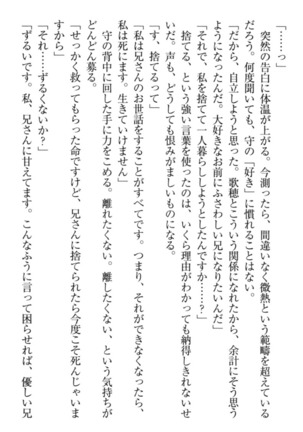 「……っ」
　突然の告白に体温が上がる。今測ったら、間違いなく微熱という範疇を超えている
だろう。何度聞いても、守の「好き」に慣れることはない。
「だから、自立しようと思った。歌穂とこういう関係になれたから、余計にそう思う
ようになったんだ。大好きなお前にふさわしい兄になりたいんだ」
「それで、私を捨てて一人暮らししようとしたんですか……？」
　捨てる、という強い言葉を使ったのは、いくら理由がわかっても納得しきれないせ
いだ。声も、どうしても恨みがましいものになる。
「す、捨てるって」
「私は兄さんのお世話をすることがすべてです。つまり、それができなくなったら、
私は死にます。生きていけません」
　守の背中に回した手に力をこめる。離れたくない。離したくない、という気持ちが
どんどん募る。
「せっかく救ってもらった命ですけど、兄さんに捨てられたら今度こそ死んじゃいま
すから」
「それ……ずるくないか？」
「ずるいです。私、兄さんに甘えてます。こんなふうに言って困らせれば、優しい兄